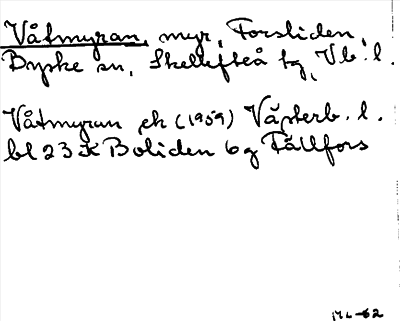 Våtmyran, myr, Forsliden,
Byske sn, Skellefteå tg, Vb. l.
Våtmyran ek (1959) Västerb. l.
bl 23 K Boliden 6g Fällfors